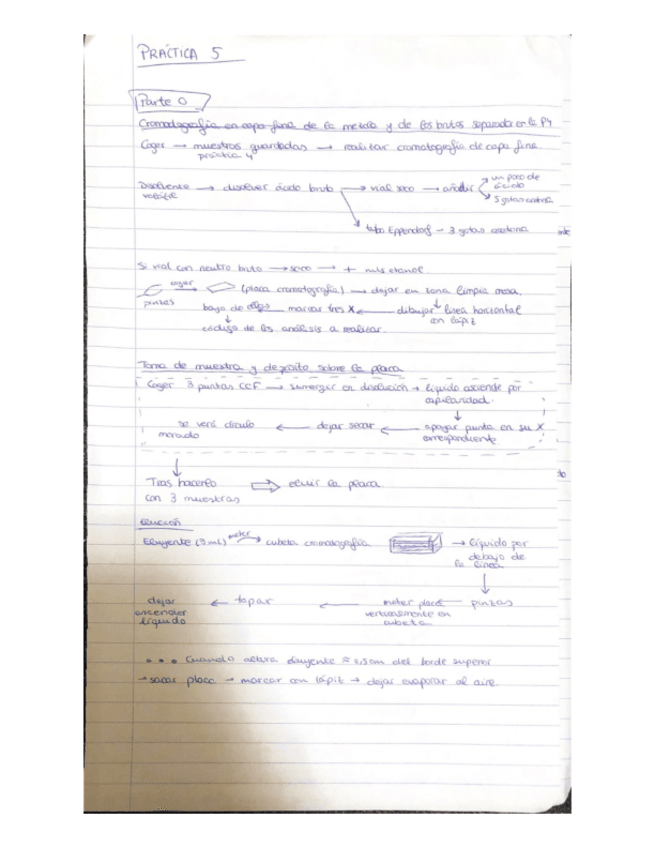 PRÁCTICA 5
Parte 0
Cromatografía en capa fina de la mezcla y de los brutos separados en la P4
Coger → muestras guardadas → realizar cromatografía de capa fina
práctica 4
Disolvente → disolver ácido bruto → vial seco → añadir un poco de ácido
volátil 5 gotas
tubo Eppendorf - 3 gotas acetona
Si vial con neutro bruto → seco → + más etanol
coger (placa cromatografía) → dejar en zona limpia mesa.
pinzas bajo de ellas marcar tres X ← dibujar línea horizontal
con lápiz
código de los análisis a realizar.
Toma de muestra y depósito sobre la placa
Coger 3 puntas CCF → sumergir en disolución → líquido asciende por
capilaridad.
se verá círculo ← dejar secar ← apoyar punta en su X
mercado correspondiente
Tras hacerlo ⇒ eluir la placa
con 3 muestras
Elución
Eluyente (3mL) meter cubeta cromatografía → líquido por
debajo de
la línea
dejar ← tapar ← meter placa pinzas
ascender verticalmente en
líquido cubeta
• • • Cuando altura eluyente ≈ 0,5cm del borde superior
→ sacar placa → marcar con lápiz → dejar evaporar al aire